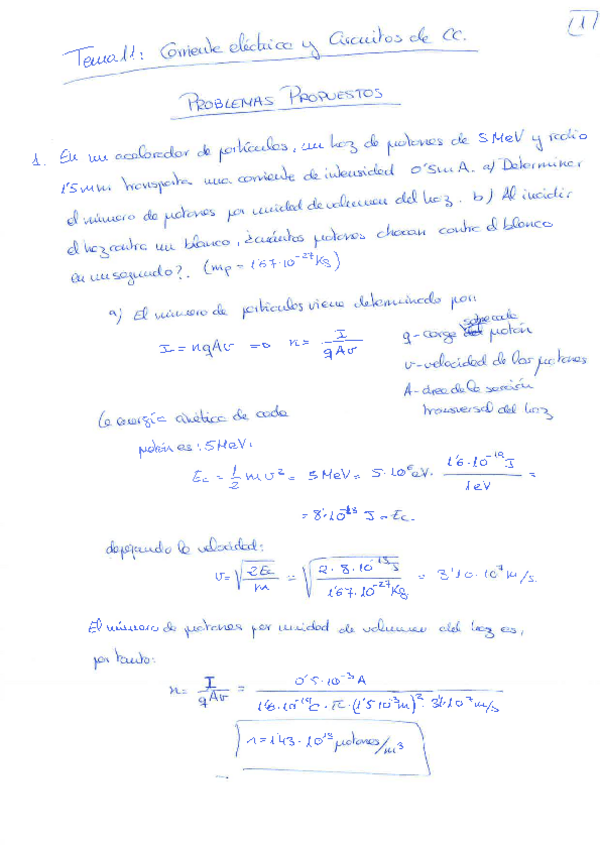 1
Tema 11: Corriente eléctrica y Circuitos de CC.
PROBLEMAS PROPUESTOS
1. En un acelerador de partículas, un haz de protones de 5 MeV y radio
1'5 mm transporta una corriente de intensidad 0'5 mA. a) Determinar
el número de protones por unidad de volumen del haz. b) Al incidir
el haz contra un blanco, ¿cuántos protones chocan contra el blanco
en un segundo?. (mp = 1'67·10⁻²⁷ Kg)
a) El número de partículas viene determinado por:
I = nqAv => n = I / qAv
q - carga sobre cada protón
v - velocidad de los protones
A - área de la sección
transversal del haz
La energía cinética de cada
protón es: 5 MeV:
Ec = 1/2 m v² = 5 MeV = 5·10⁶ eV · 1'6·10⁻¹⁹ J / 1 eV =
= 8·10⁻¹³ J = Ec.
despejando la velocidad:
v = √(2Ec / m) = √(2·8·10⁻¹³ J / 1'67·10⁻²⁷ Kg) = 3'10·10⁷ m/s.
El número de protones por unidad de volumen del haz es,
por tanto:
n = I / qAv = 0'5·10⁻³ A / 1'6·10⁻¹⁹ C · π · (1'5 10⁻³ m)² · 3'1·10⁷ m/s
n = 1'43·10¹³ protones/m³